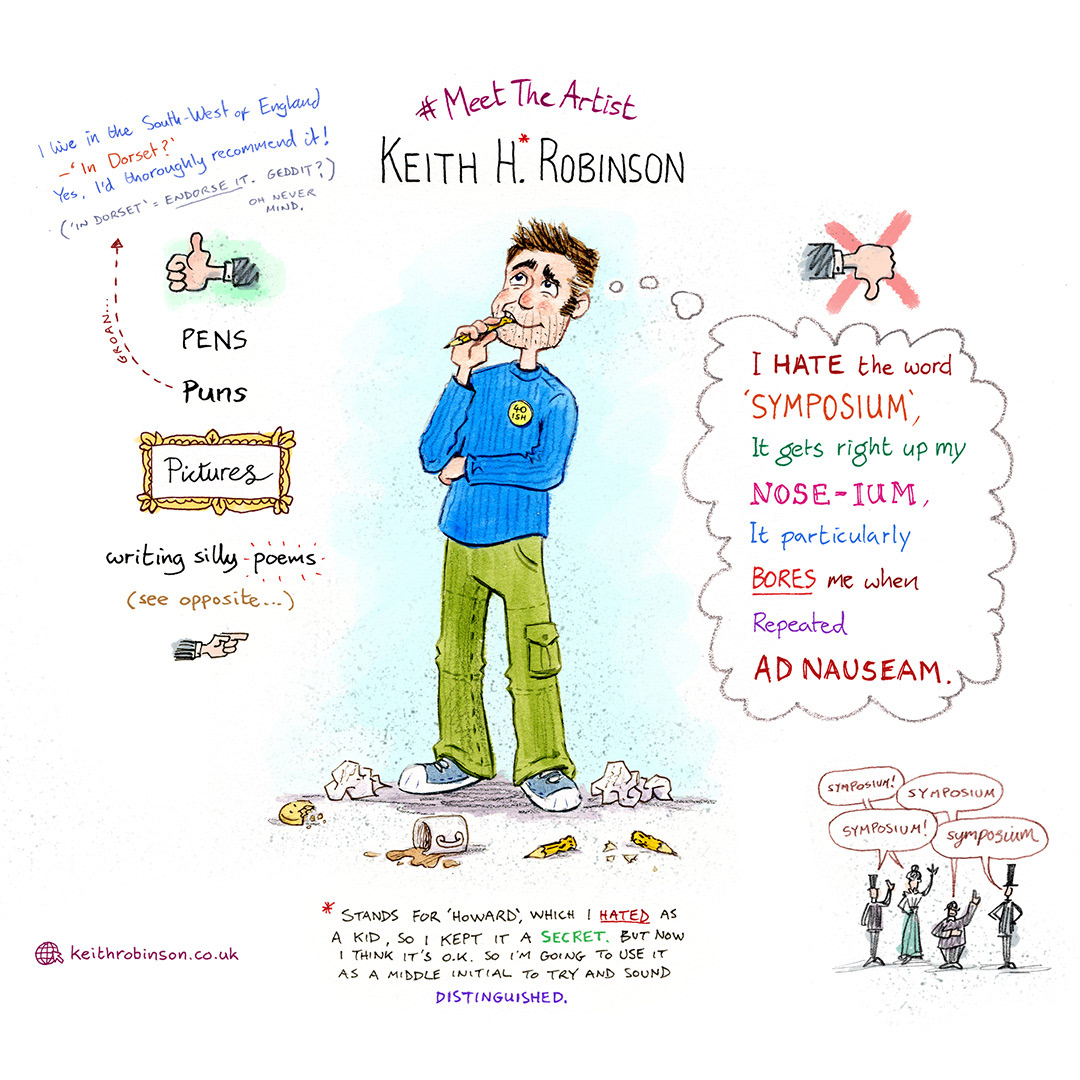 # Meet The Artist
KEITH H.* ROBINSON
I live in the South-West of England
–'In Dorset?'
Yes, I'd thoroughly recommend it!
('IN DORSET' = ENDORSE IT. GEDDIT?)
OH NEVER
MIND.
GROAN...
PENS
Puns
Pictures
writing silly poems
(see opposite...)
40
ISH
I HATE the word
'SYMPOSIUM',
It gets right up my
NOSE-IUM,
It particularly
BORES me when
Repeated
AD NAUSEAM.
SYMPOSIUM!
SYMPOSIUM
SYMPOSIUM!
symposium
* STANDS FOR 'HOWARD', WHICH I HATED AS
A KID, SO I KEPT IT A SECRET. BUT NOW
I THINK IT'S O.K. SO I'M GOING TO USE IT
AS A MIDDLE INITIAL TO TRY AND SOUND
DISTINGUISHED.
keithrobinson.co.uk